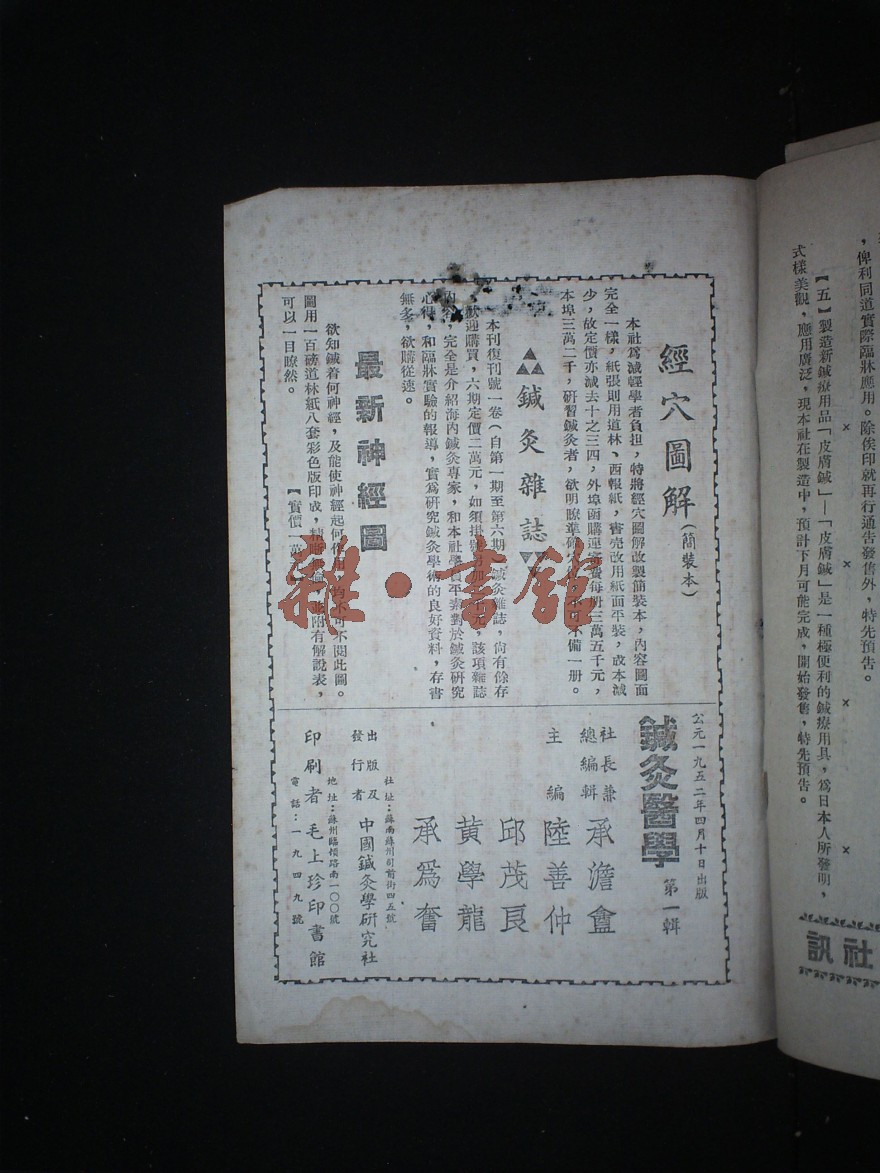 ，俾利同道實際臨牀應用。除俟印就再行通告發售外，特先預告。
× × × ×
【五】製造新鍼療用品「皮膚鍼」—「皮膚鍼」是一種極便利的鍼療用具，爲日本人所發明，
式樣美觀，應用廣泛，現本社在製造中，預計下月可能完成，開始發售，特先預告。
社訊
經穴圖解（簡裝本）
本社爲減輕學者負担，特將經穴圖解改製簡裝本，內容圖面
完全一樣，紙張則用道林、西報紙，書壳改用紙面平裝，成本減
少，故定價亦減去十之三四，外埠函購連寄費每册三萬五千元，
本埠三萬二千，研習鍼灸者，欲明瞭準確 不可不備一册。
鍼灸雜誌
本刊復刊號一卷（自第一期至第六期 鍼灸雜誌，尙有餘存
歡迎購買，六期定價二萬元，如須掛號 加 千元，該項雜誌
內容，完全是介紹海內鍼灸專家，和本社學員平素對於鍼灸研究
心得，和臨牀實驗的報導，實爲研究鍼灸學術的良好資料，存書
無多，欲購從速。
最新神經圖
欲知鍼着何神經，及能使神經起何作用，均不可不閱此圖。
圖用一百磅道林紙八套彩色版印成，精 附有解說表，
可以一目瞭然。
【實價一萬
公元一九五二年四月十日出版
鍼灸醫學 第一輯
社長兼
總編輯 承澹盦
主編 陸善仲
邱茂良
黃學龍
承爲奮
社址：蘇南蘇州司前街四五號
出版及
發行者 中國鍼灸學研究社
地址：蘇州臨頓路南一〇〇號
印刷者 毛上珍印書館
電話：一九四九號
雜·書館